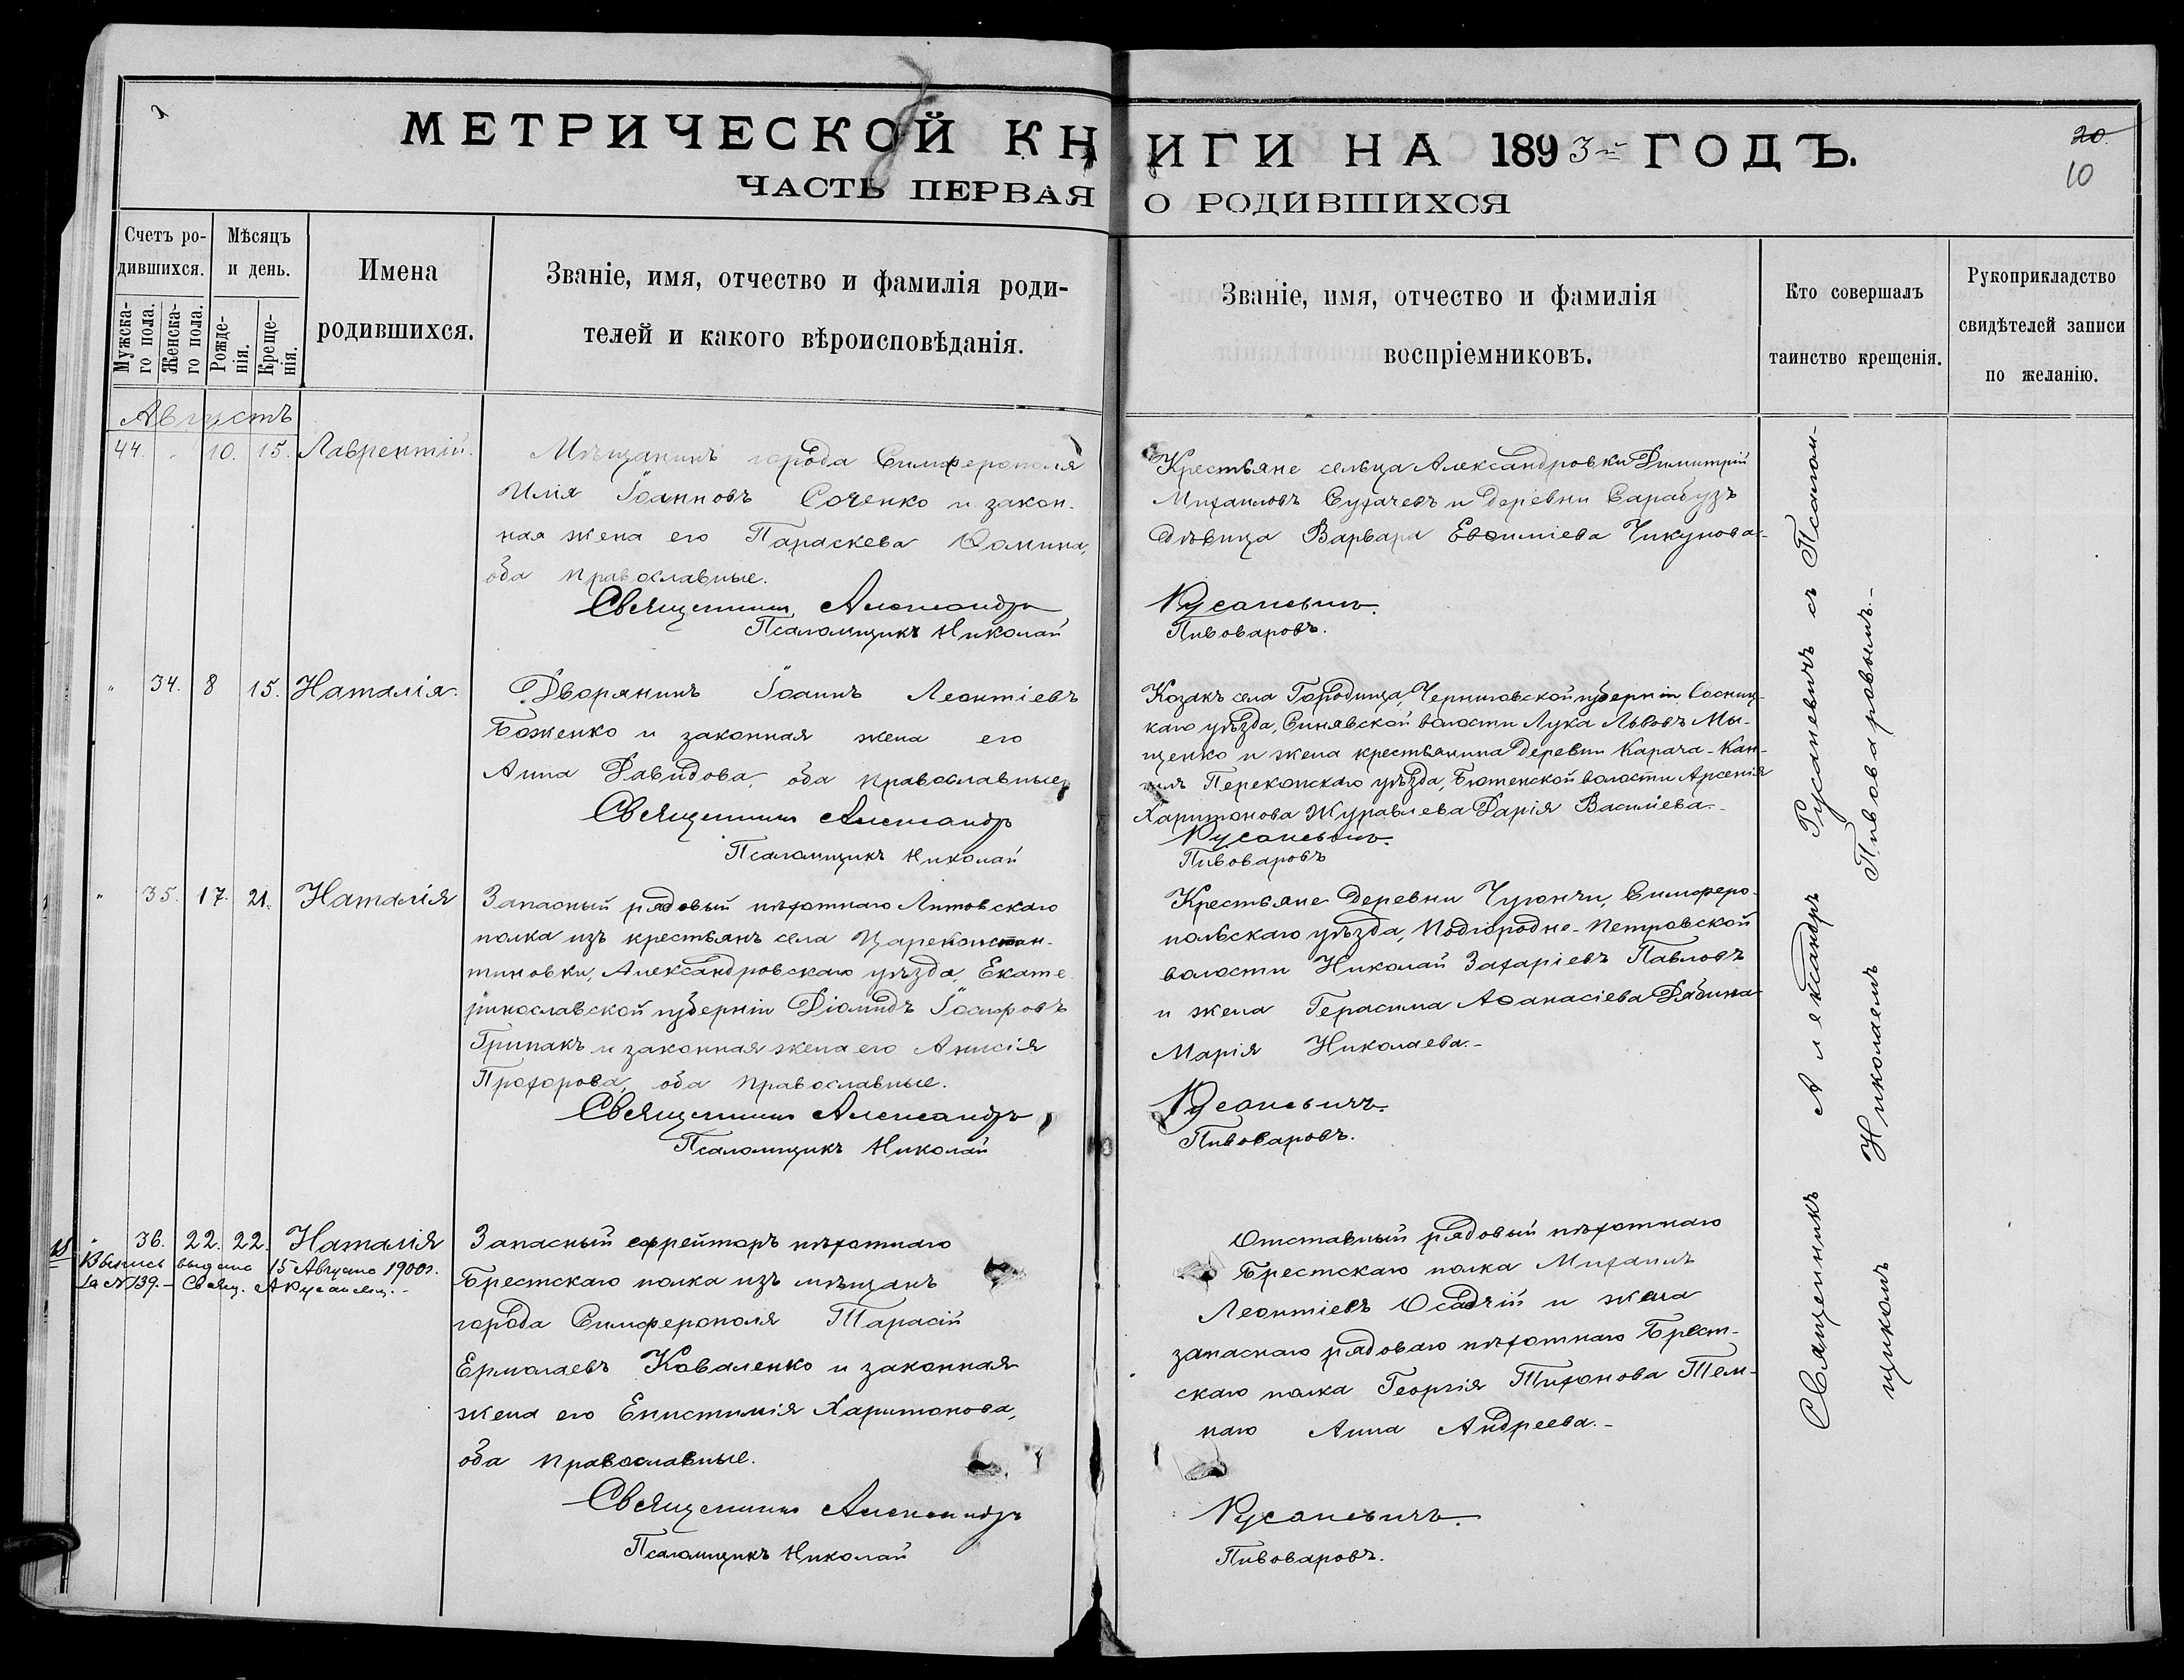 МЕТРИЧЕСКОЙ КНИГИ НА 1893-й ГОДЪ.
ЧАСТЬ ПЕРВАЯ О РОДИВШИХСЯ
20
10
Счетъ родившихся.
Мужскаго пола.
Женскаго пола.
Мѣсяцъ и день.
Рожденія.
Крещенія.
Имена родившихся.
Званіе, имя, отчество и фамилія роди-
телей и какого вѣроисповѣданія.
Званіе, имя, отчество и фамилія
воспріемниковъ.
Кто совершалъ
таинство крещенія.
Рукоприкладство
свидѣтелей записи
по желанію.
Августъ
44. " 10. 15. Лаврентій.
Мѣщанинъ города Симферополя
Илія Іоанновъ Соченко и закон-
ная жена его Параскева Ѳомина,
оба православные.
Священникъ Александръ
Псаломщикъ Николай
Крестьяне сельца Александровки Димитрій
Михаиловъ Сухачевъ и деревни Сарабузъ
дѣвица Варвара Евѳиміева Чикунова.-
Русаневичъ.
Пивоваровъ.
" 34. 8 15. Наталія.
Дворянинъ Іоаннъ Леонтіевъ
Боженко и законная жена его
Анна Давидова, оба православные
Священникъ Александръ
Псаломщикъ Николай
Козакъ села Городища, Черниговской губерніи, Сосниц-
каго уѣзда, Синявской волости Лука Львовъ Мы-
щенко и жена крестьянина деревни Карача-Кан-
гилъ Перекопскаго уѣзда, Бютенской волости Арсенія
Харитонова Журавлева Дарія Василіева.-
Русаневичъ.
Пивоваровъ
" 35. 17. 21. Наталія
Запасный рядовый пѣхотнаго Литовскаго
полка изъ крестьянъ села Цареконстан-
тиновки, Александровскаго уѣзда, Екате-
ринославской губерніи Діомидъ Іосифовъ
Грипакъ и законная жена его Анисія
Прохорова, оба православные.
Священникъ Александръ
Псаломщикъ Николай
Крестьяне деревни Чугюнчи, Симферо-
польскаго уѣзда, Подгородне-Петровской
волости Николай Захаріевъ Павловъ
и жена Герасима Аѳанасіева Рябина
Марія Николаева.-
Русаневичъ.
Пивоваровъ.
" 36. 22. 22. Наталія
Выпись выдана 15 Августа 1900 г.
за № 139.- Свящ. А Русаневич.-
Запасный ефрейторъ пѣхотнаго
Брестскаго полка изъ мѣщанъ
города Симферополя Тарасій
Ермолаевъ Коваленко и законная
жена его Епистимія Харитонова,
оба православные.
Священникъ Александръ
Псаломщикъ Николай
Отставный рядовый пѣхотнаго
Брестскаго полка Михаилъ
Леонтіевъ Осадчій и жена
запаснаго рядоваго пѣхотнаго Брест-
скаго полка Георгія Тихонова Тем-
наго Анна Андреева.-
Русаневичъ.
Пивоваровъ.
Священникъ Александръ Русаневичъ съ Псалом-
щикомъ Николаемъ Пивоваровымъ.-